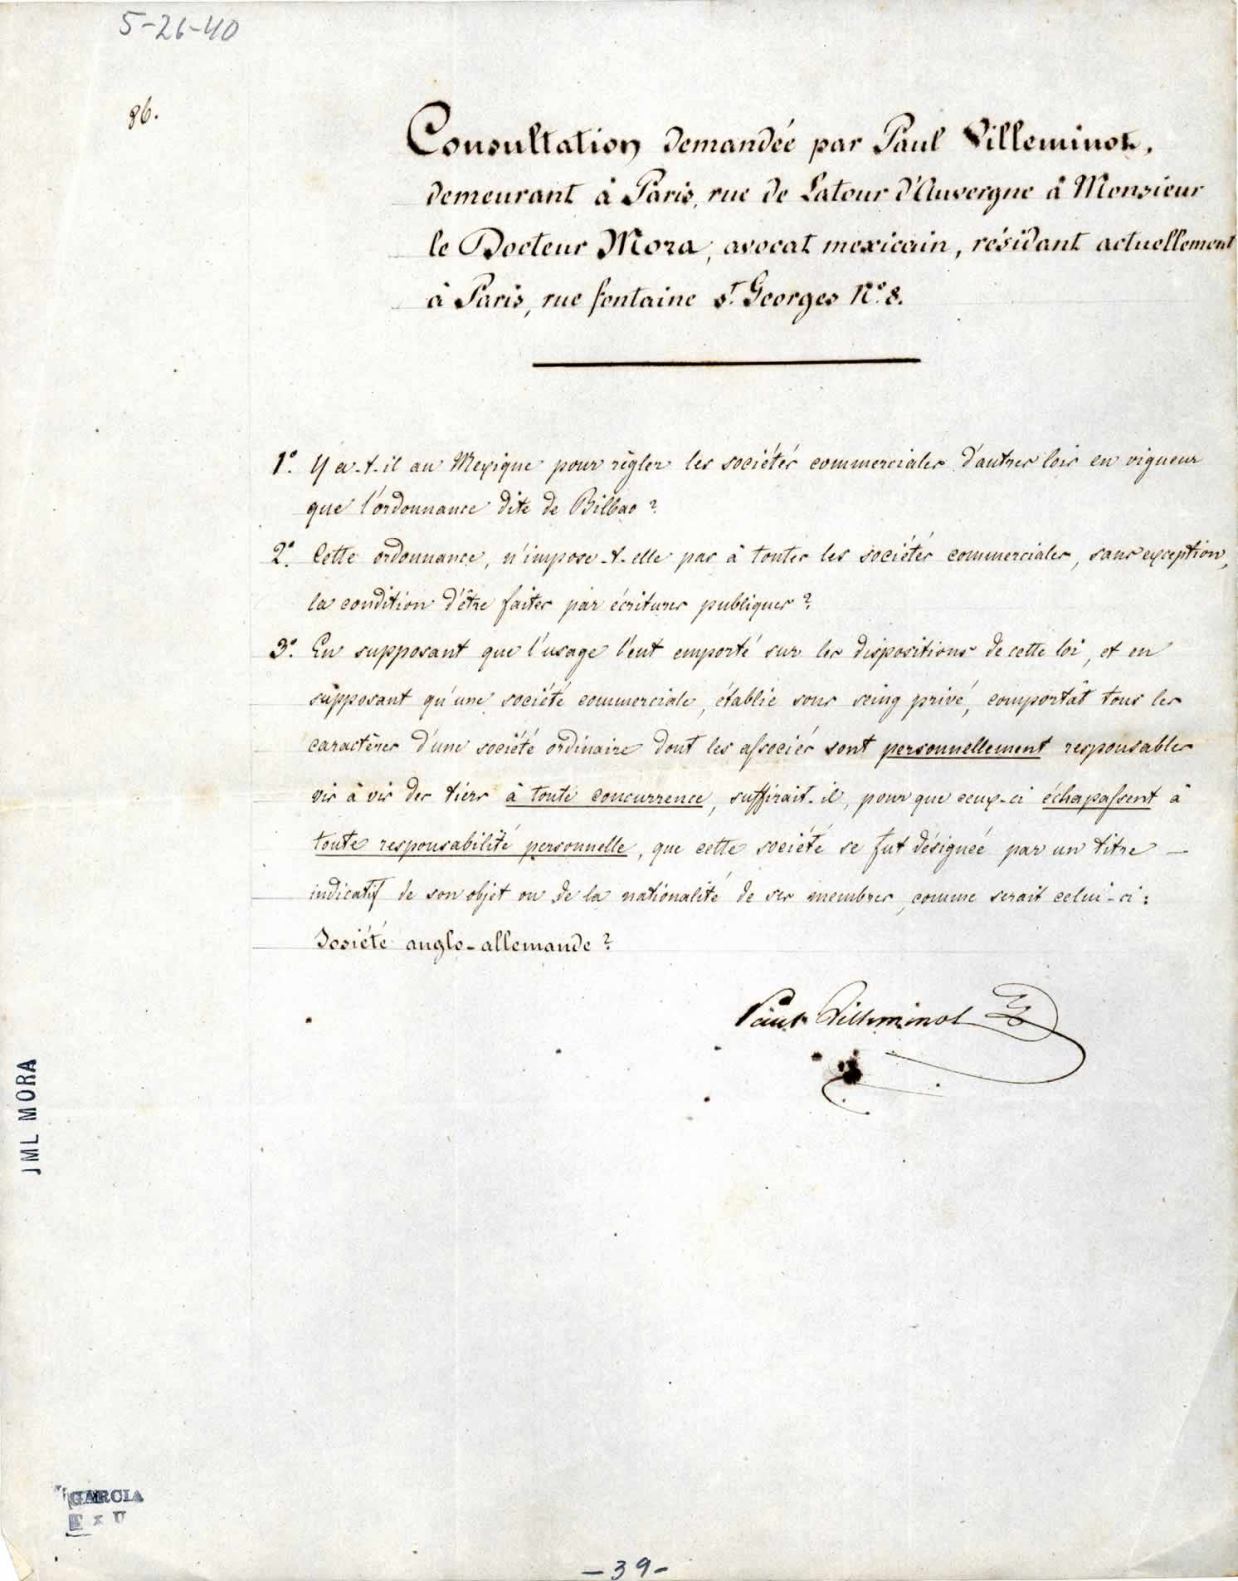 5-26-40
86.
Consultation demandée par Paul Villeminot,
demeurant à Paris, rue de Latour d'Auvergne à Monsieur
le Docteur Mora, avocat mexicain, résidant actuellement
à Paris, rue fontaine St. Georges No. 8.
1o. Y a-t-il au Mexique pour règler les sociétés commerciales d'autres lois en vigueur
que l'ordonnance dite de Bilbao ?
2o. Cette ordonnance, n'impose-t-elle pas à toutes les sociétés commerciales, sans exception,
la condition d'être faites par écritures publiques ?
3o. En supposant que l'usage l'eut emporté sur les dispositions de cette loi, et en
supposant qu'une société commerciale, établie sous seing privé, comportât tous les
caractères d'une société ordinaire dont les associés sont personnellement responsables
vis à vis des tiers à toute concurrence, suffirait-il, pour que ceux-ci échapassent à
toute responsabilité personnelle, que cette société se fut désignée par un titre —
indicatif de son objet ou de la nationalité de ses membres, comme serait celui-ci :
Société anglo-allemande ?
Paul Villeminot
JML MORA
GARCIA
- 39 -